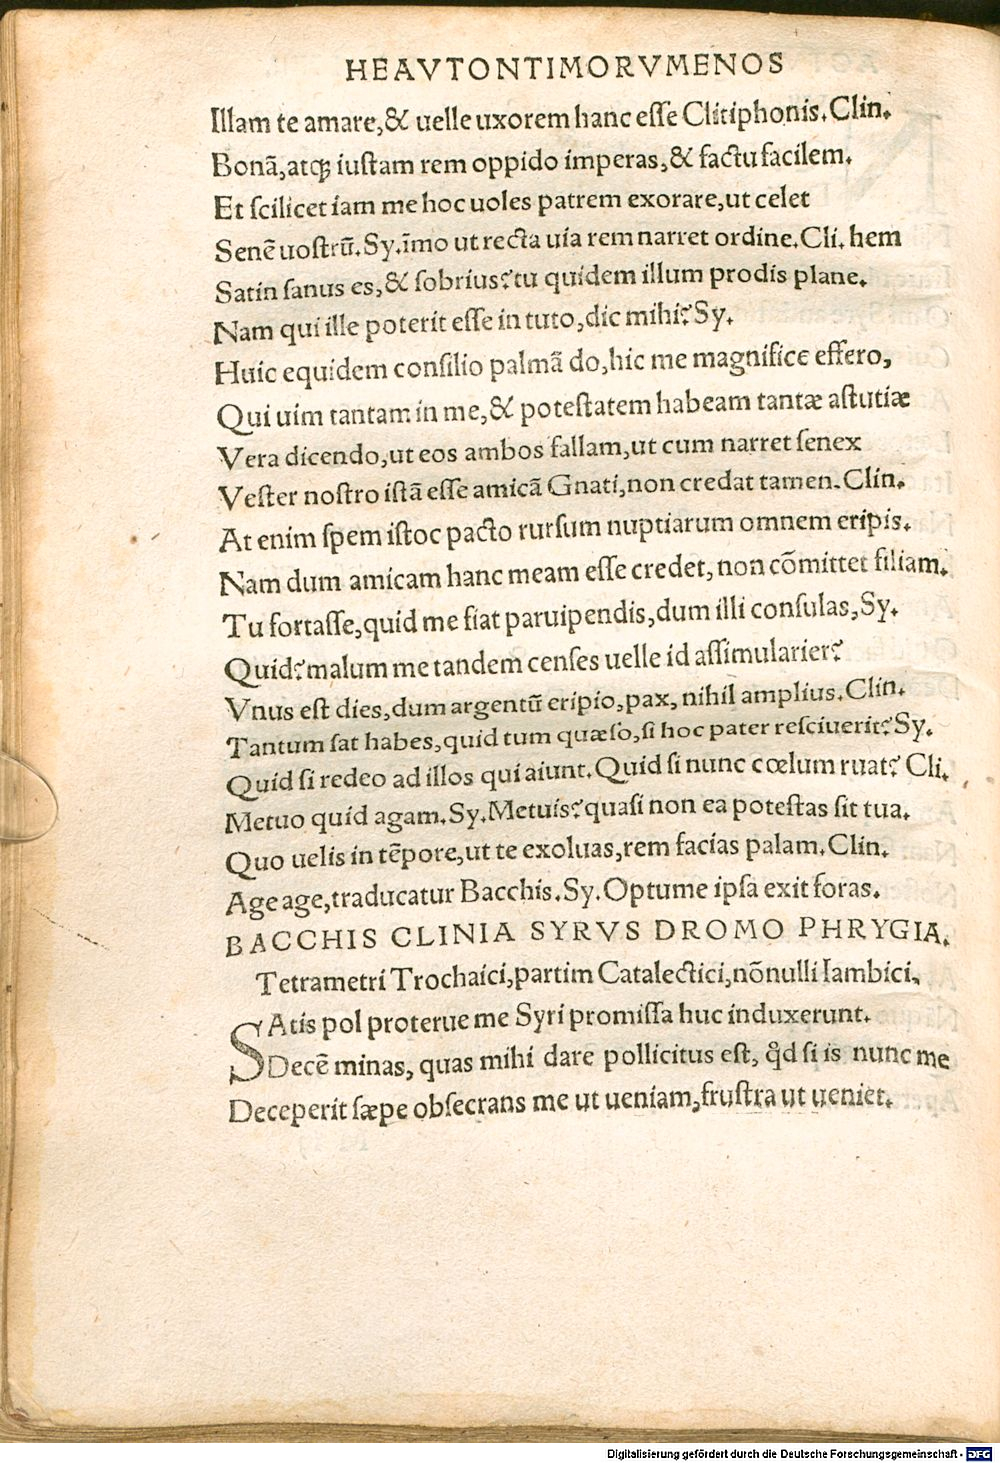 HEAVTONTIMORVMENOS
Illam te amare,& uelle uxorem hanc eſſe Clitiphonis.Clin.
Bonā,atqꝫ iuſtam rem oppido imperas,& factu facilem.
Et ſcilicet iam me hoc uoles patrem exorare,ut celet
Senē uoſtrū.Sy.īmo ut recta uia rem narret ordine.Cli.hem
Satin ſanus es,& ſobrius?tu quidem illum prodis plane.
Nam qui ille poterit eſſe in tuto,dic mihi?Sy.
Huic equidem conſilio palmā do,hic me magnifice effero,
Qui uim tantam in me,& poteſtatem habeam tantæ aſtutiæ
Vera dicendo,ut eos ambos fallam,ut cum narret ſenex
Veſter noſtro iſtā eſſe amicā Gnati,non credat tamen.Clin.
At enim ſpem iſtoc pacto rurſum nuptiarum omnem eripis.
Nam dum amicam hanc meam eſſe credet,non cōmittet filiam.
Tu fortaſſe,quid me fiat paruipendis,dum illi conſulas,Sy.
Quid?malum me tandem cenſes uelle id aſſimularier?
Vnus eſt dies,dum argentū eripio,pax,nihil amplius.Clin.
Tantum ſat habes,quid tum quæſo,ſi hoc pater reſciuerit?Sy.
Quid ſi redeo ad illos qui aiunt.Quid ſi nunc cœlum ruat?Cli.
Metuo quid agam.Sy.Metuis?quaſi non ea poteſtas ſit tua.
Quo uelis in tēpore,ut te exoluas,rem facias palam.Clin.
Age age,traducatur Bacchis.Sy.Optume ipſa exit foras.
BACCHIS CLINIA SYRVS DROMO PHRYGIA.
Tetrametri Trochaici,partim Catalectici,nōnulli Iambici.
SAtis pol proterue me Syri promiſſa huc induxerunt.
Decē minas, quas mihi dare pollicitus eſt, qd̄ ſi is nunc me
Deceperit ſæpe obſecrans me ut ueniam,fruſtra ut ueniet.
Digitalisierung gefördert durch die Deutsche Forschungsgemeinschaft - DFG